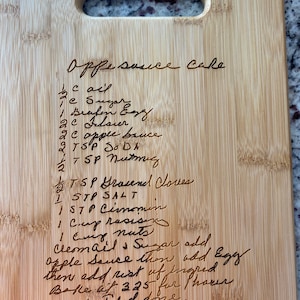 Applesauce Cake
1/2 C oil
1 C Sugar
1 Beaten Egg
2 C
2 C apple sauce
2 TSP SODA
1/2 TSP Nutmeg
1/2 TSP Ground Cloves
1 STP SALT
1 STP Cinnimin
1 Cup
1 Cup Nuts
Cream oil & Sugar add
apple Sauce then add Egg
then add rest of ingrid
Bake at 325 for